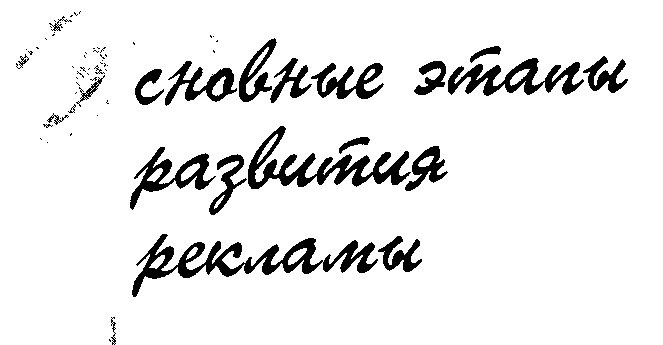 Основные этапы
развития
рекламы